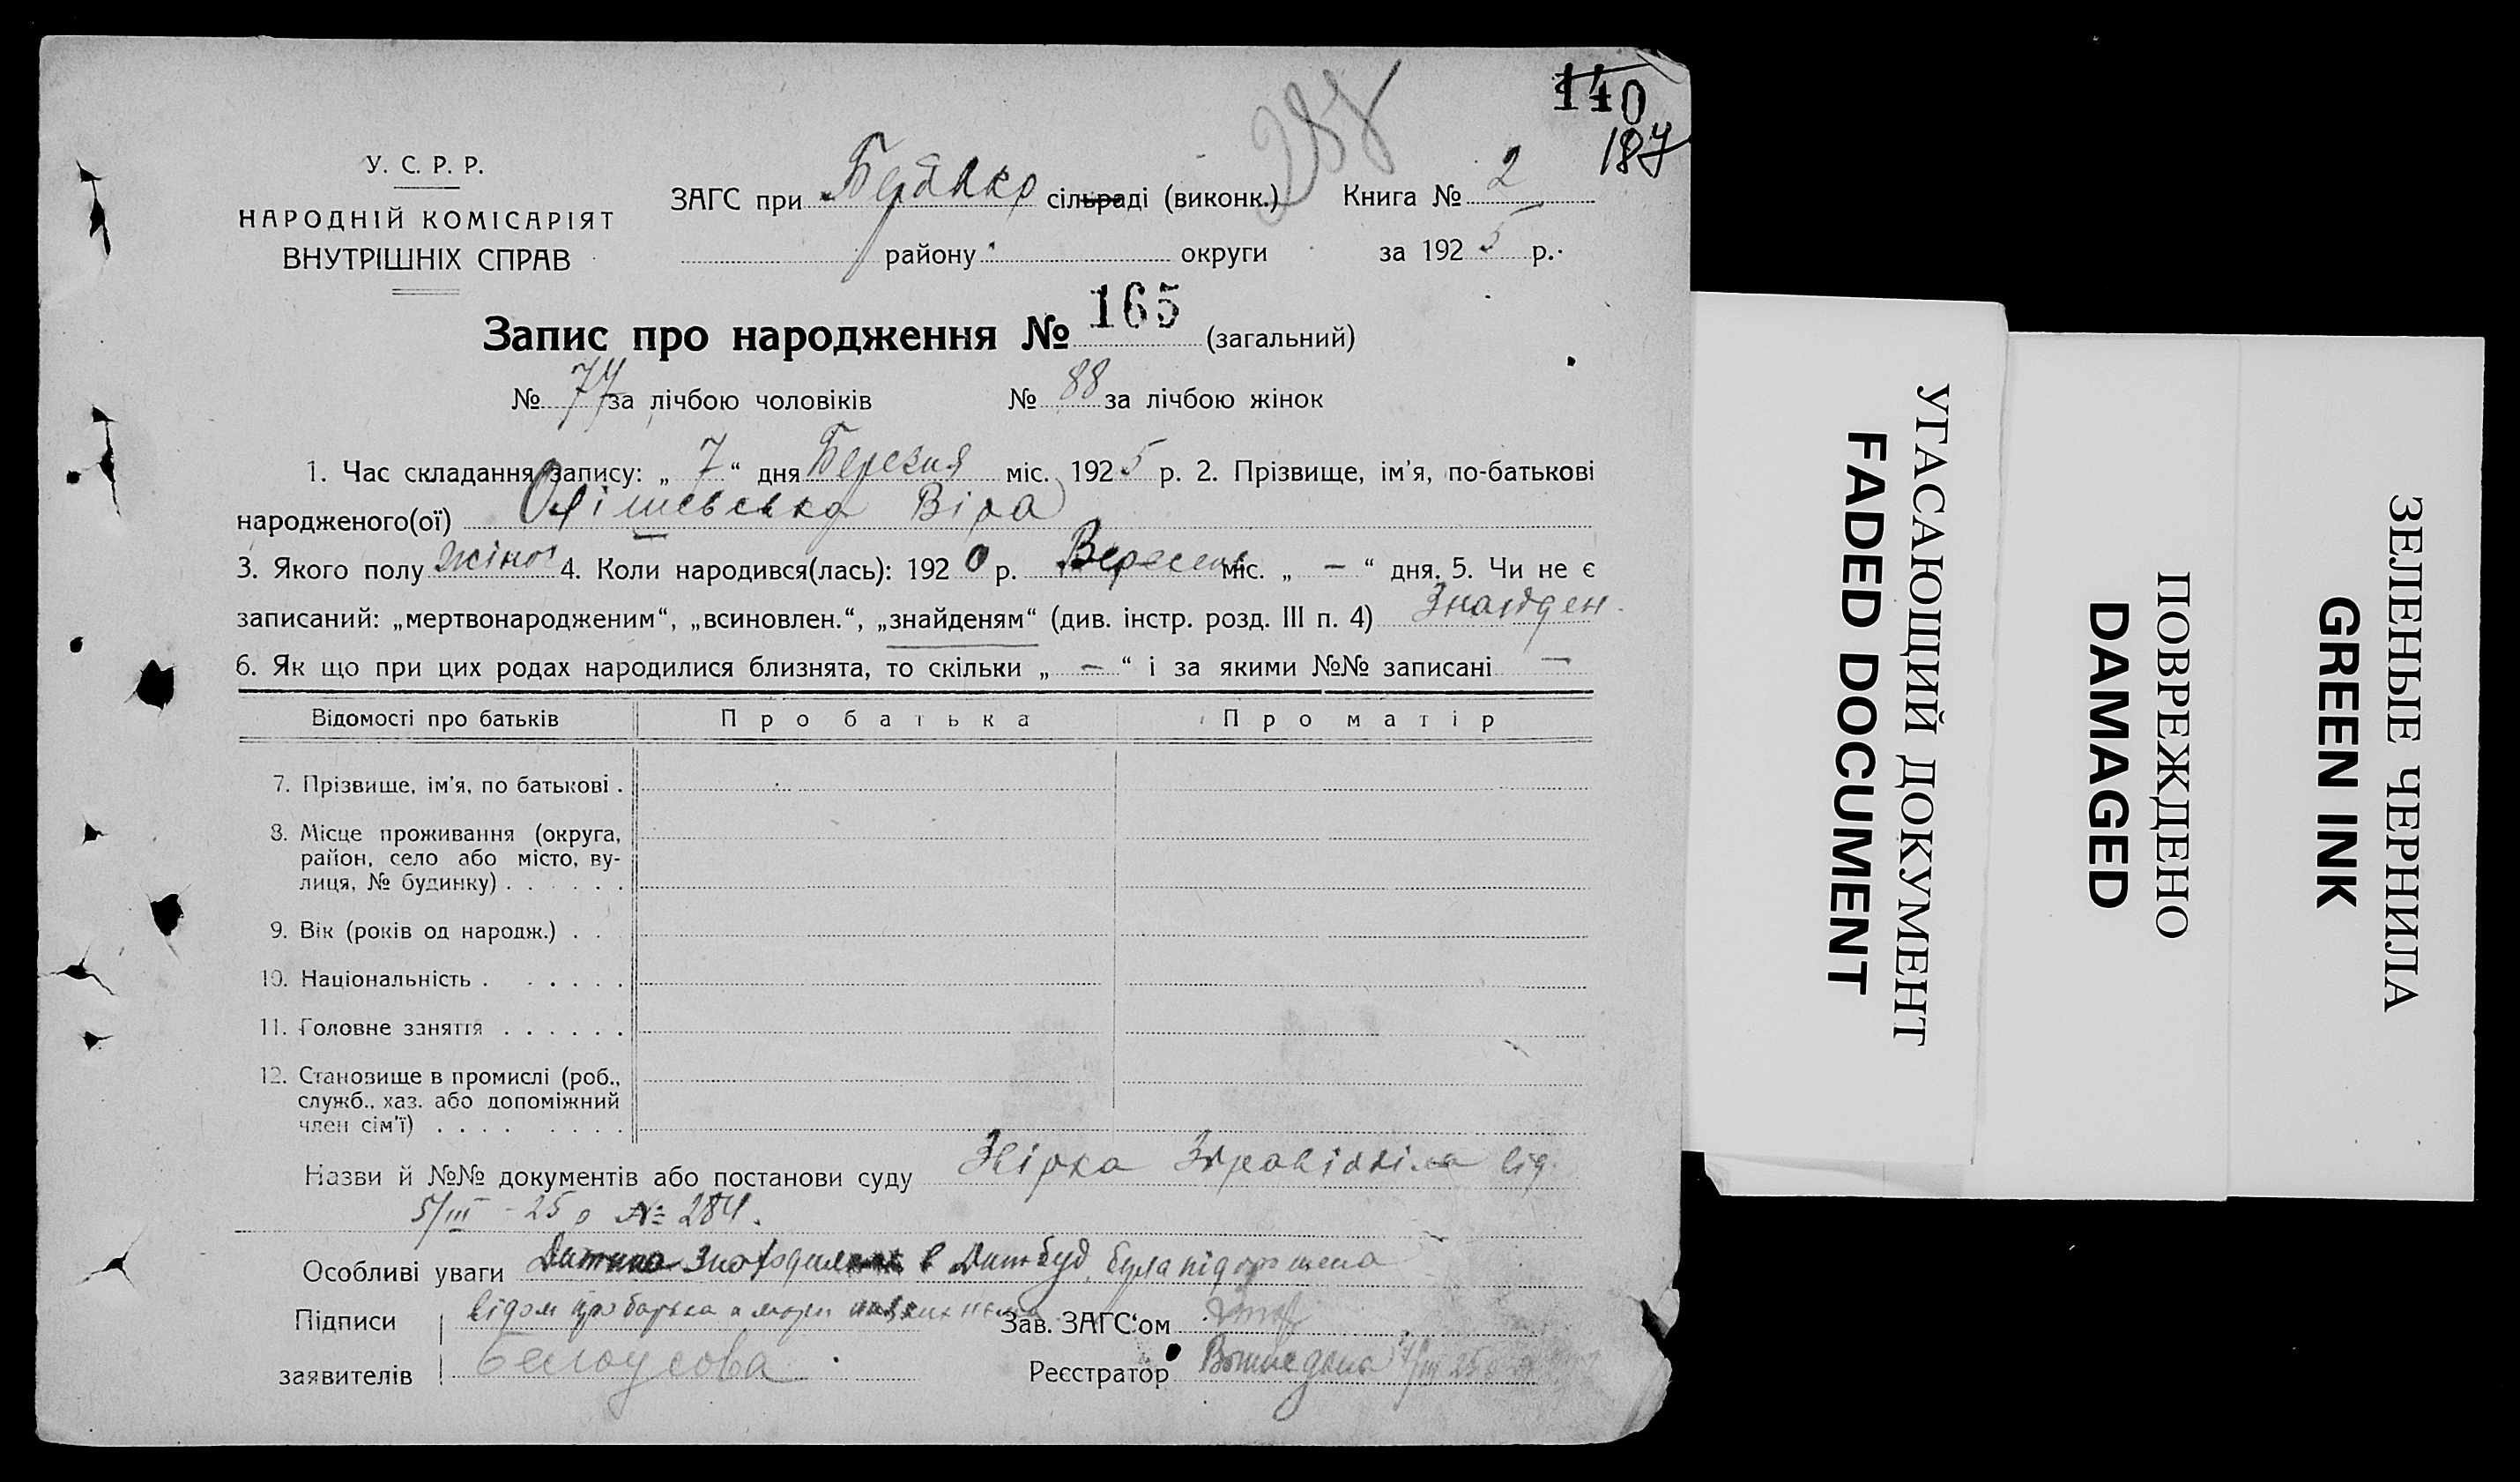 140
187
288
У. С. Р. Р.
НАРОДНІЙ КОМІСАРІЯТ
ВНУТРІШНІХ СПРАВ
ЗАГС при сільраді (виконк.) Книга № 2
району округи за 1925 р.
Запис про народження № 165 (загальний)
№ 77 за лічбою чоловіків № 88 за лічбою жінок
1. Час складання запису: „ 7 “ дня Березня міс. 1925 р. 2. Прізвище, ім’я, по-батькові
народженого(ої) Віра
3. Якого полу жіноч 4. Коли народився(лась): 1920 р. Вересень міс. „ – “ дня. 5. Чи не є
записаний: „мертвонародженим“, „всиновлен.“, „знайденям“ (див. інстр. розд. III п. 4) Знайден.
6. Як що при цих родах народилися близнята, то скільки „ – “ і за якими №№ записані –
Відомості про батьків Про батька Про матір
7. Прізвище, ім’я, по батькові .
8. Місце проживання (округа,
район, село або місто, ву-
лиця, № будинку) . . . . . .
9. Вік (років од народж.) . .
10. Національність . . . . . .
11. Головне заняття . . . . . .
12. Становище в промислі (роб.,
служб., хаз. або допоміжний
член сім’ї) . . . . . . . .
Назви й №№ документів або постанови суду від.
5/III – 25 р № 284.
Особливі уваги Дитина в Дитбуд. була підкошена
Підписи відом про батька а матери ніяких нема Зав. ЗАГС‘ом
заявителів Белоусова Реєстратор
УГАСАЮЩИЙ ДОКУМЕНТ
FADED DOCUMENT
ПОВРЕЖДЕНО
DAMAGED
ЗЕЛЕНЫЕ ЧЕРНИЛА
GREEN INK